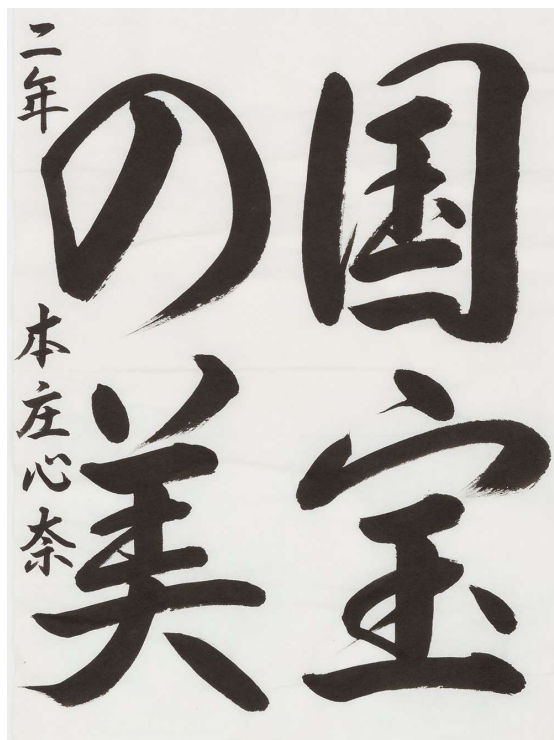 国宝
の美
二年 本庄心奈